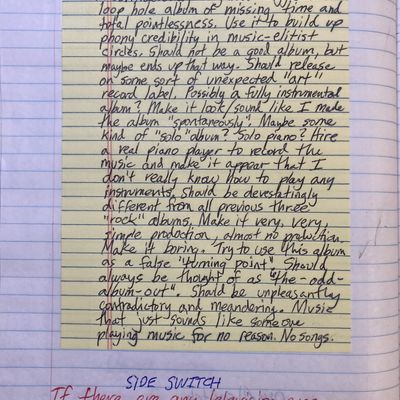 loop hole album of missing time and
total pointlessness. Use it to build up
phony credibility in music-elitist
circles. Should not be a good album, but
maybe ends up that way. Should release
on some sort of unexpected "art"
record label. Possibly a fully instrumental
album? Make it look/sound like I made
the album "spontaneously". Maybe some
kind of "solo" album? Solo piano? Hire
a real piano player to record the
music and make it appear that I
don't really know how to play any
instruments. Should be devestatingly
different from all previous three
"rock" albums. Make it very, very,
simple production, almost no production.
Make it boring. Try to use this album
as a false "turning point". Should
always be thought of as "the-odd-
album-out". Should be unpleasantly
contradictory and meandering. Music
that just sounds like someone
playing music for no reason. No songs.
SIDE SWITCH
If there are any